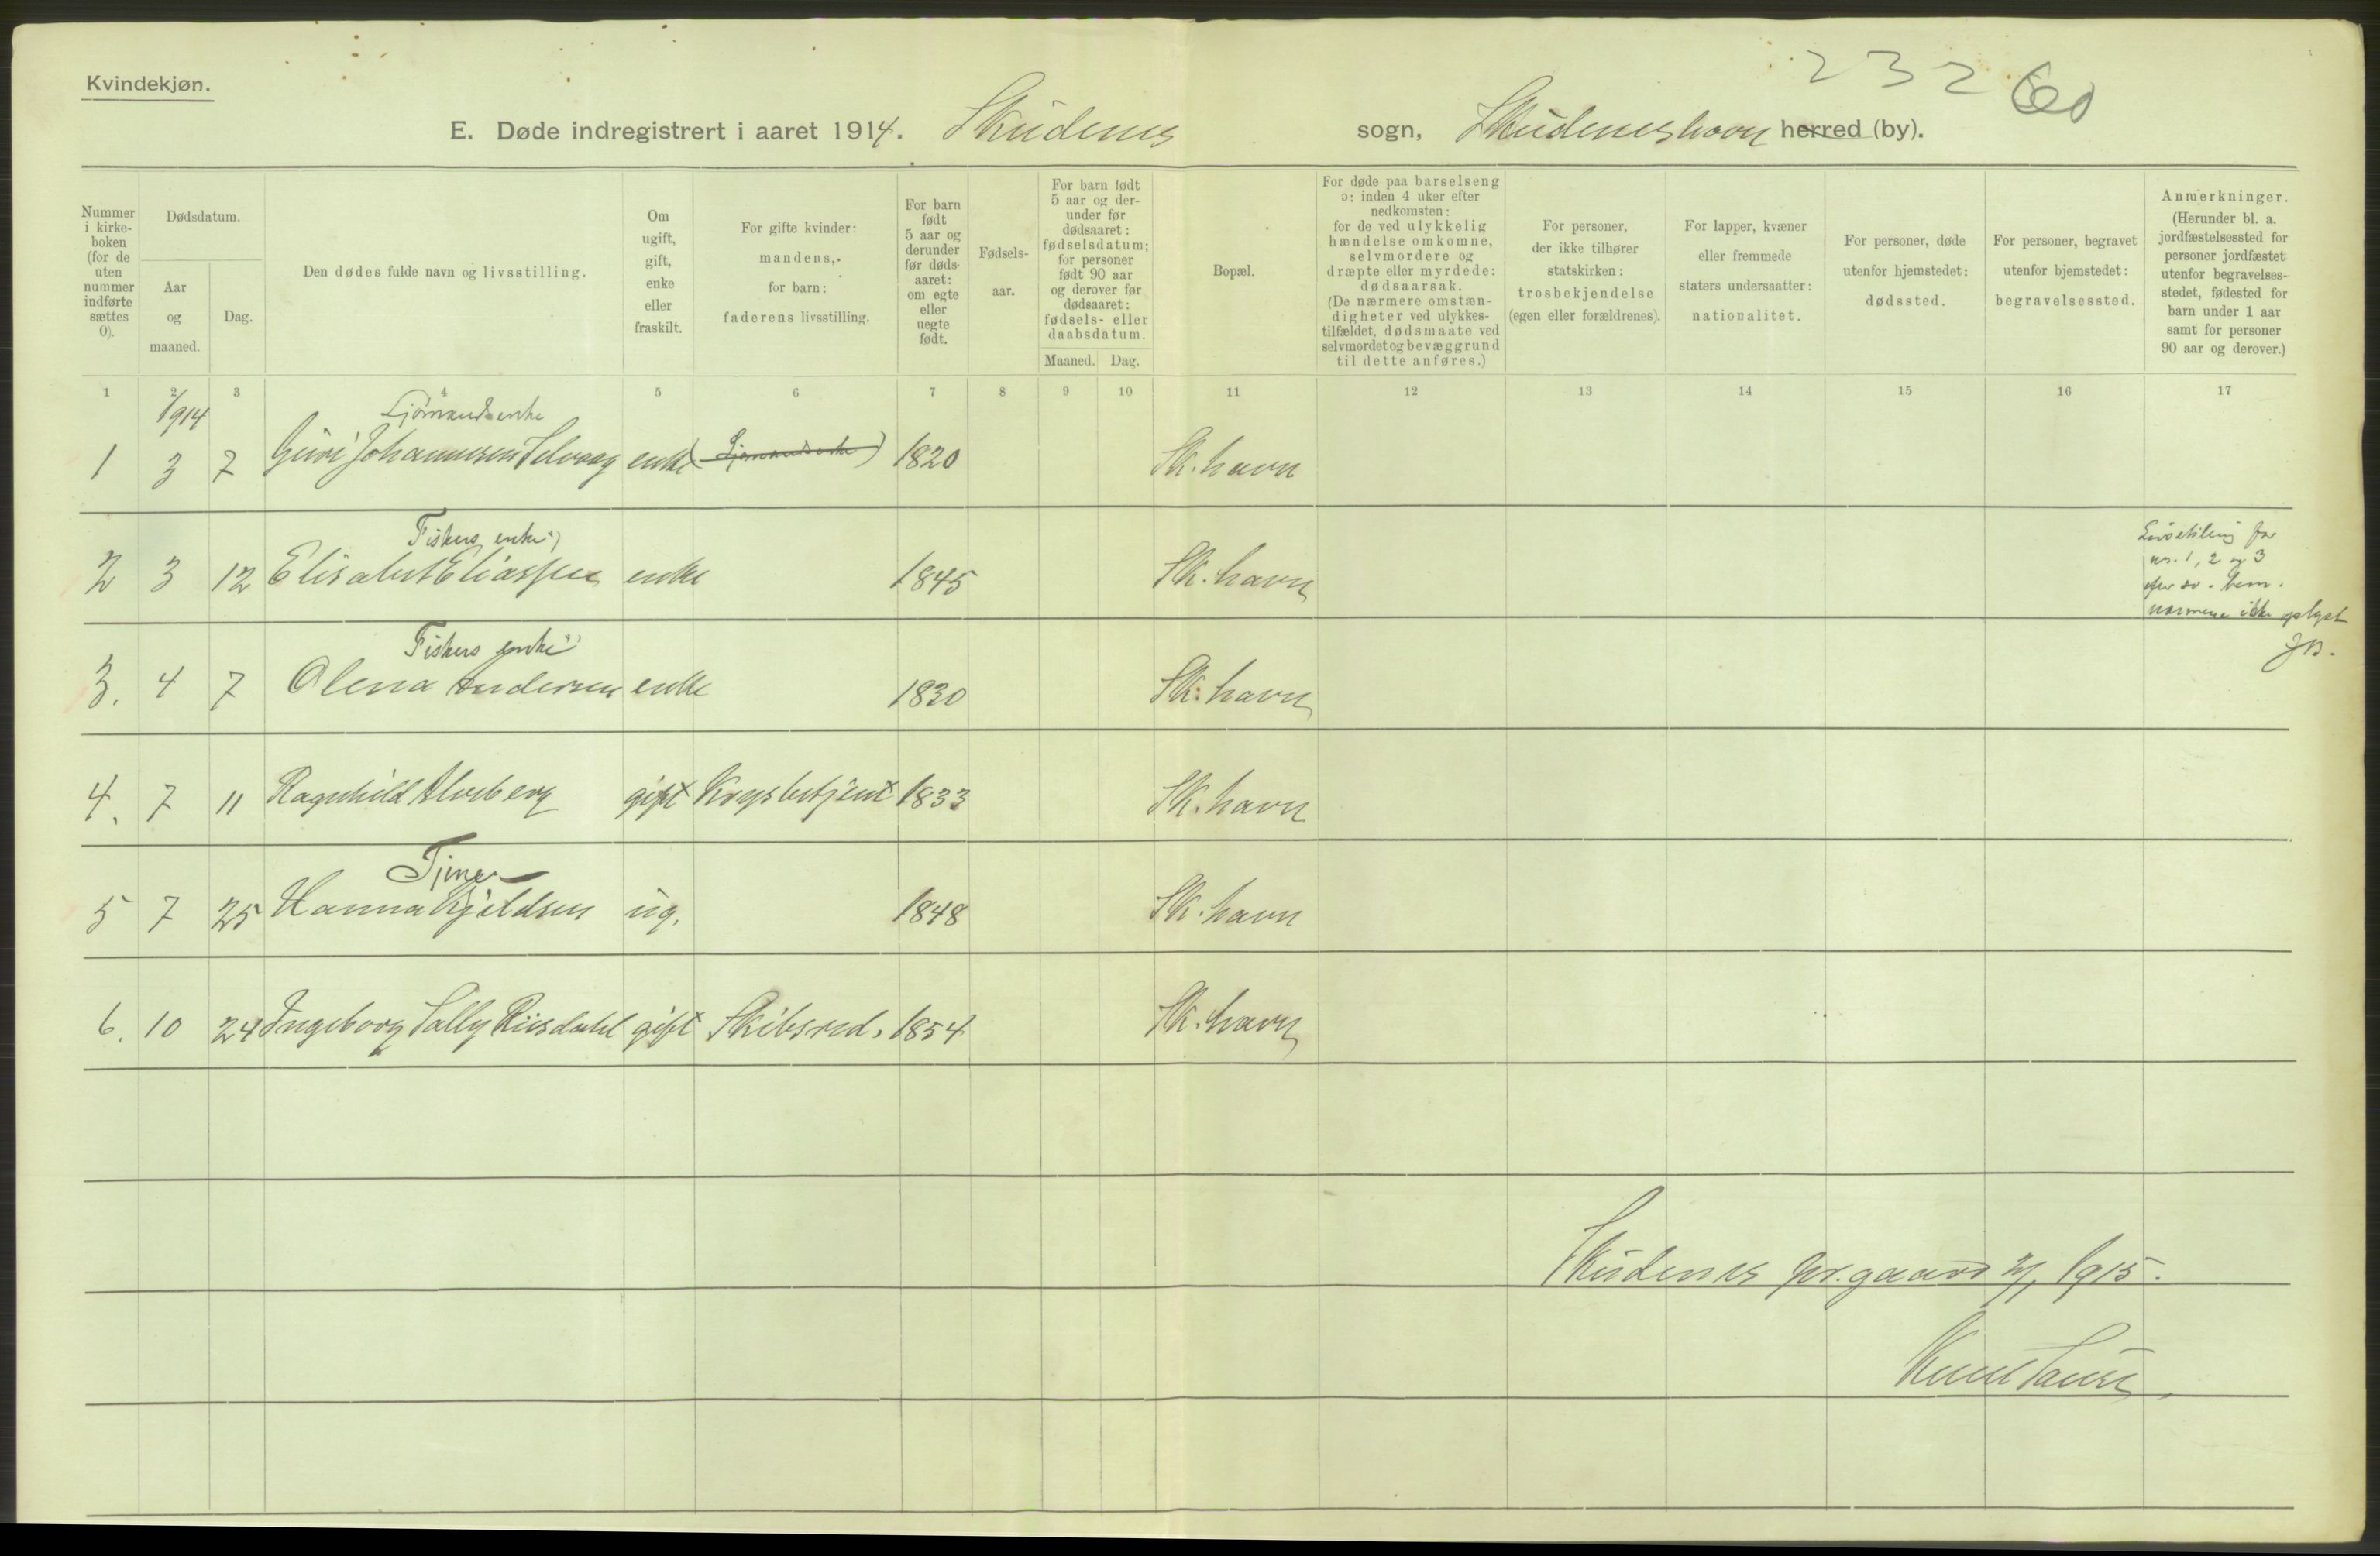 Kvindekjøn.
232 60
E. Døde indregistrert i aaret 1914. Skudenes sogn, Skudeneshavn herred (by).
Nummer i kirkeboken (for de uten nummer indførte sættes 0).
Dødsdatum.
Aar og maaned.
Dag.
Den dødes fulde navn og livsstilling.
Om ugift, gift, enke eller fraskilt.
For gifte kvinder: mandens, for barn: faderens livsstilling.
For barn født 5 aar og derunder før dødsaaret: om egte eller uegte født.
Fødselsaar.
For barn født 5 aar og derunder før dødsaaret: fødselsdatum; for personer født 90 aar og derover før dødsaaret: fødsels- eller daabsdatum.
Maaned. Dag.
Bopæl.
For døde paa barselseng ɔ: inden 4 uker efter nedkomsten: for de ved ulykkelig hændelse omkomne, selvmordere og dræpte eller myrdede: dødsaarsak. (De nærmere omstændigheter ved ulykkestilfældet, dødsmaate ved selvmordet og bevæggrund til dette anføres.)
For personer, der ikke tilhører statskirken: trosbekjendelse (egen eller forældrenes).
For lapper, kvæner eller fremmede staters undersaatter: nationalitet.
For personer, døde utenfor hjemstedet: dødssted.
For personer, begravet utenfor hjemstedet: begravelsessted.
Anmerkninger. (Herunder bl. a. jordfæstelsessted for personer jordfæstet utenfor begravelsesstedet, fødested for barn under 1 aar samt for personer 90 aar og derover.)
1 2 3 4 5 6 7 8 9 10 11 12 13 14 15 16 17
1914 Sjømandsenke
1 3 7 Guri Johannesen Selvaag enke (Sjømandsenke) 1820 Sk. havn
Fiskers enke
2 3 12 Elisabet Eliassen enke 1845 Sk. havn
Livsstilling for
nr. 1, 2 og 3
nærmere ikke oplyst
Fiskers enke
3. 4 7 Olena Andersen enke 1830 Sk. havn
4. 7 11 Ragnhild Alvberg gift 1833 Sk. havn
Tjener
5 7 25 Hanna Kjeldsen ug. 1848 Sk. havn
6. 10 24 Ingeborg Sally Riisdahl gift Skibsred. 1854 Sk. havn
Skudenes pr.gaard 1915.